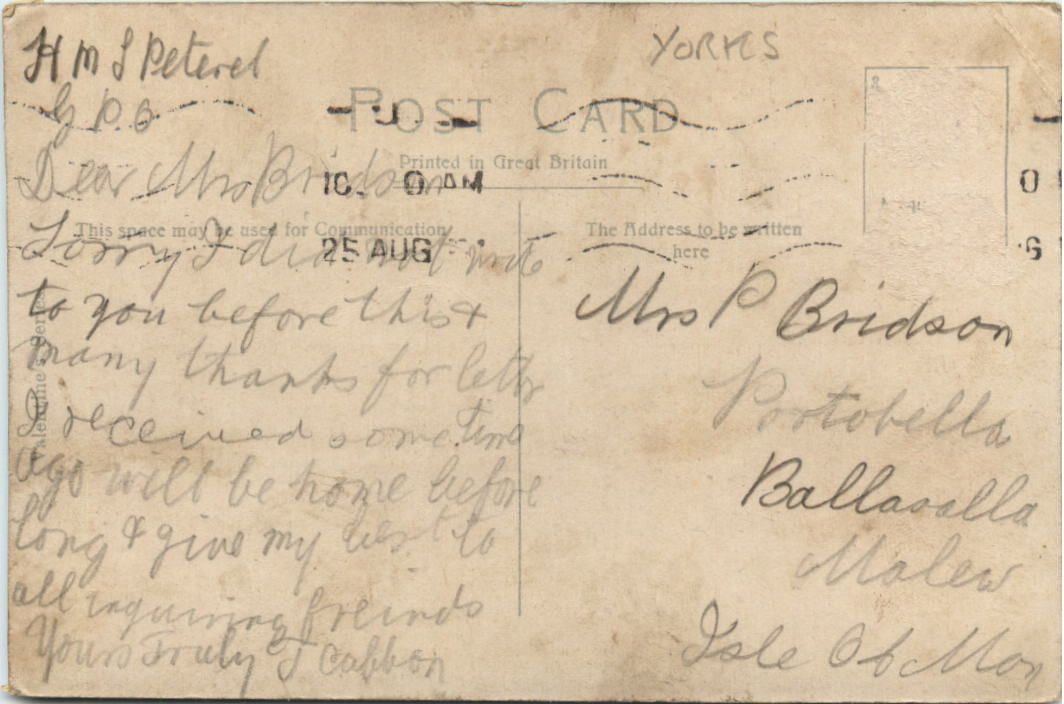 YORKS
H M S Peterel
G P.O
POST CARD
Printed in Great Britain
10. 0 AM
25 AUG
This space may be used for Communication
The Address to be written
here
Valentine's Series
Dear Mrs Bridson
Sorry I did not write
to you before this &
many thanks for letter
I received some time
ago will be home before
long & give my best to
all inquiring freinds
Yours Truly J Cabbon
Mrs P Bridson
Portobella
Ballasalla
Malew
Isle Of Man